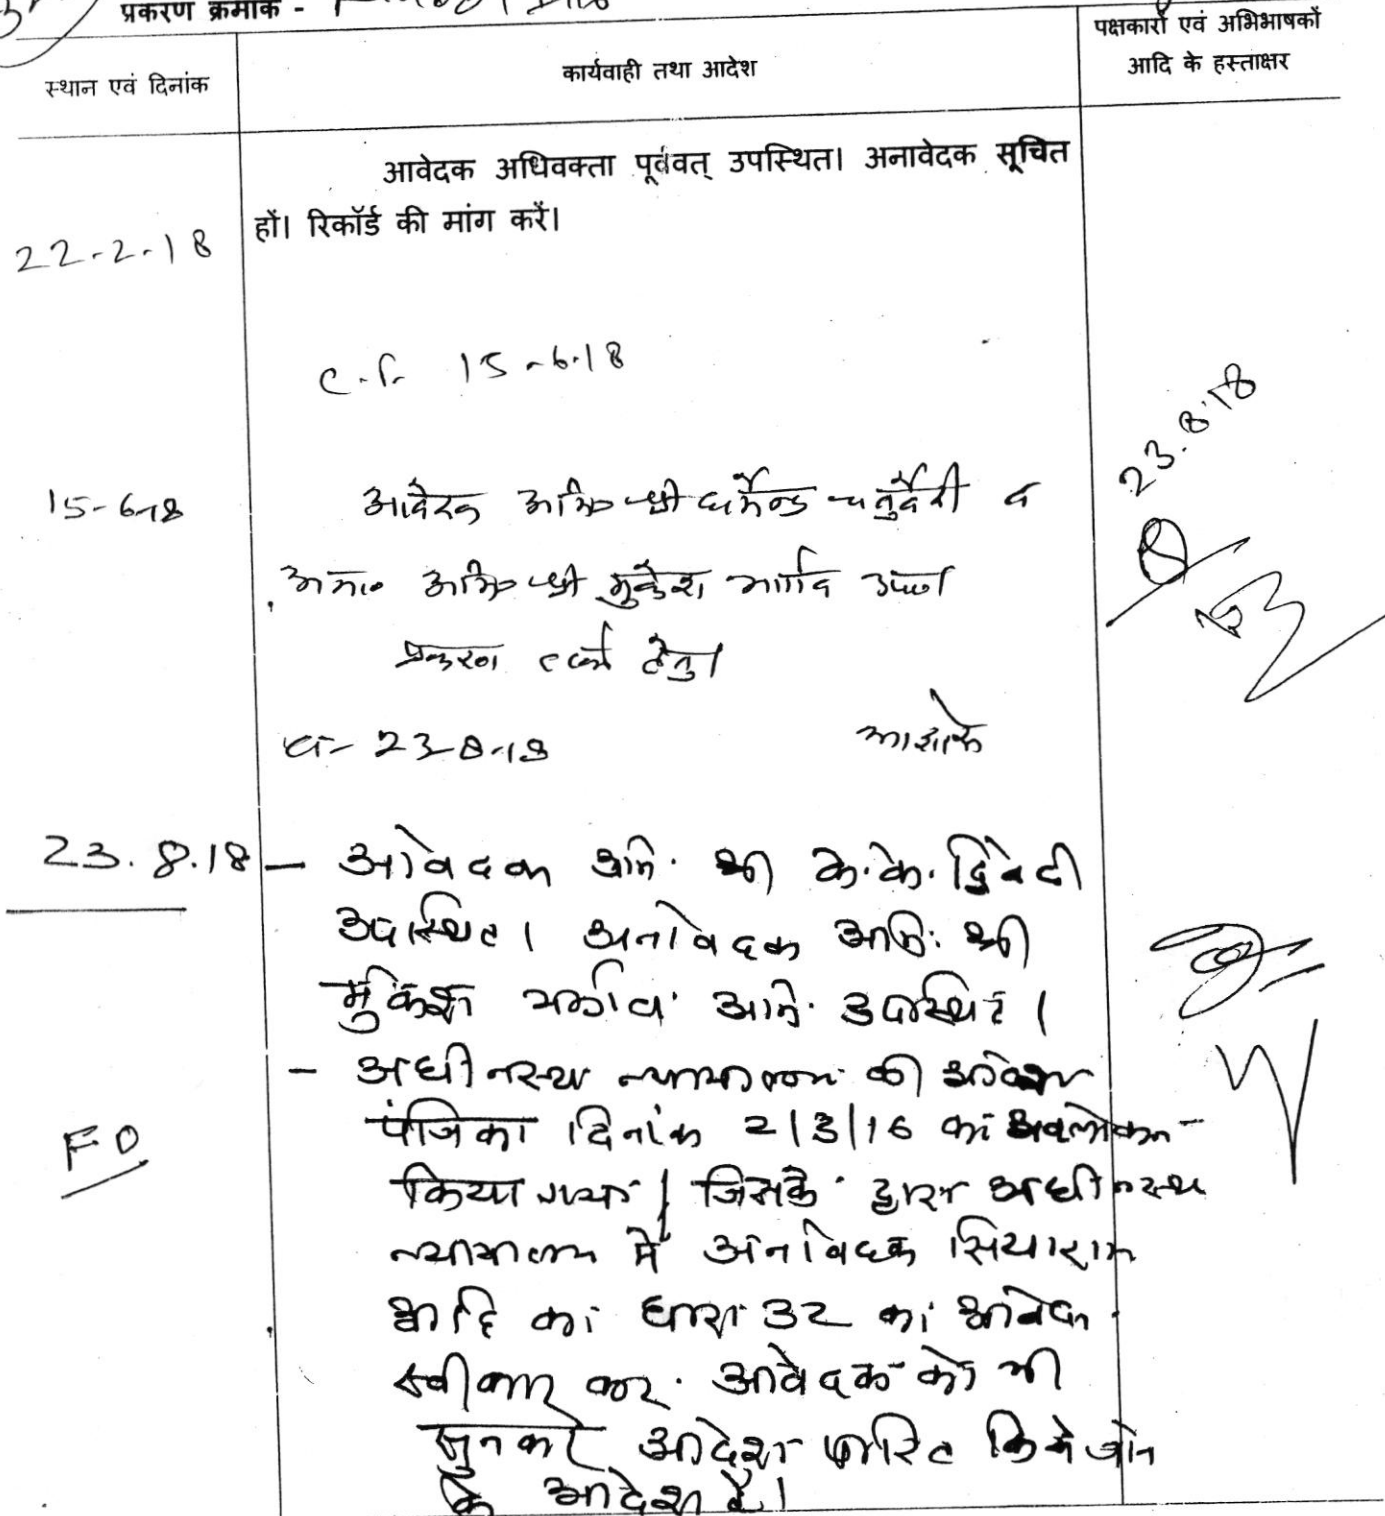 प्रकरण क्रमांक -
स्थान एवं दिनांक
कार्यवाही तथा आदेश
पक्षकारों एवं अभिभाषकों
आदि के हस्ताक्षर
आवेदक अधिवक्ता पूर्ववत् उपस्थित। अनावेदक सूचित
हों। रिकॉर्ड की मांग करें।
22-2-18
c.f. 15-6-18
23.8.18
15-6-18
आवेदक अभि० श्री धर्मेन्द्र चतुर्वेदी व
अना० अभि० श्री मुकेश भार्गव उप०
प्रकरण तर्क हेतु।
23-8-18
23.8.18 - आवेदक अभि. श्री के.के. द्विवेदी
उपस्थित। अनावेदक अभि. श्री
मुकेश भार्गव अभि. उपस्थित।
- अधीनस्थ न्यायालय की आदेश
पंजिका दिनांक 2/3/16 का अवलोकन
FO
किया गया। जिसके द्वारा अधीनस्थ
न्यायालय में अनावेदक सियाराम
आदि का धारा 32 का आवेदन
स्वीकार कर आवेदक को भी
सुनकर आदेश पारित किये जाने
के आदेश है।